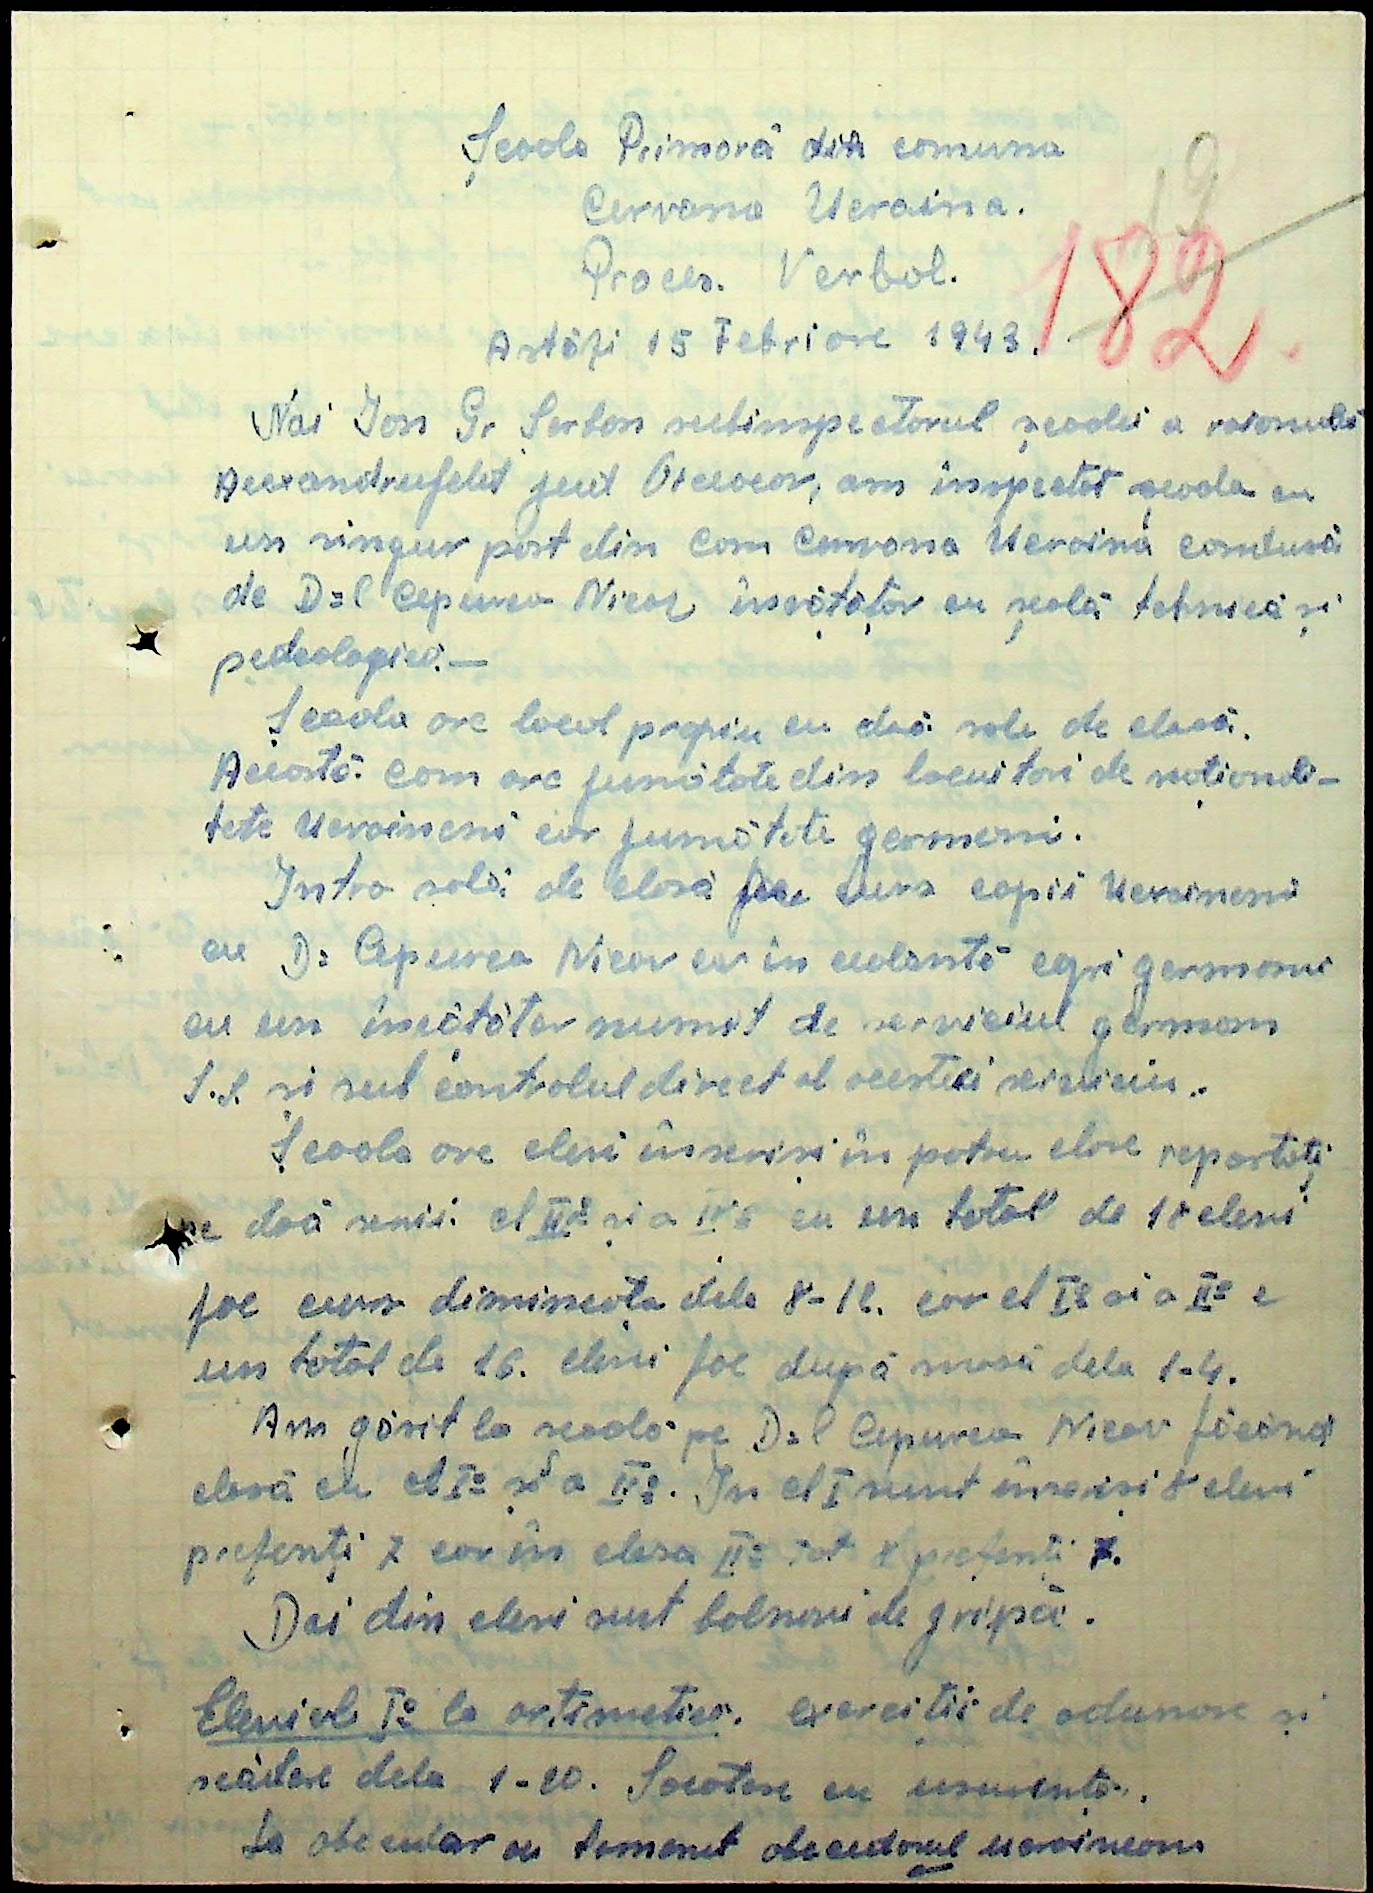 Școala Primară din comuna
Cervona Ucraina.
Proces. Verbal.
19
182.
Astăzi 15 Februare 1943.
Noi Ion Gr Serban subinspectorul școalei a raionului
Alexandrufeld jud Oceacov, am inspectat școala cu
un singur post din com Cervona Ucraina condusă
de D=l Cepurca Nicov învățător cu școlă tehnică și
pedeologică.—
Școala are local propriu cu doă sale de clasă.
Această com are jumătate din locuitori de naționali-
tete Ucraineni ear jumătate germani.
Intro sală de clasă fac curs copii Ucraineni
cu D= Cepurca Nicov ear în cealantă copi germani
cu un învățător numit de serviciul german
S.S. și sub controlul direct al acestui serviciu.
Școala are elevi înscriși în patru clase repartăți
pe doă serii. cl III-a și a IV-a cu un total de 18 elevi
fac curs dimineața dela 8-12. ear cl I-a și a II-a c
un total de 16. elevi fac după masă dela 1-4.
Am găsit la școală pe D=l Cepurca Nicov făcând
clasă cu cl I-a și a II-a. În cl I sunt înscriși 8 elevi
prezenți 7 ear în clasa II-a tot 8 prezenți 7.
Doi din elevi sunt bolnavi de gripă.
Elevi cl I-a la aritmetica. exercitii de adunare și
scădere dela 1-20. Socotesc cu usurență.
La abecidar au terminat abecedarul ucrainean